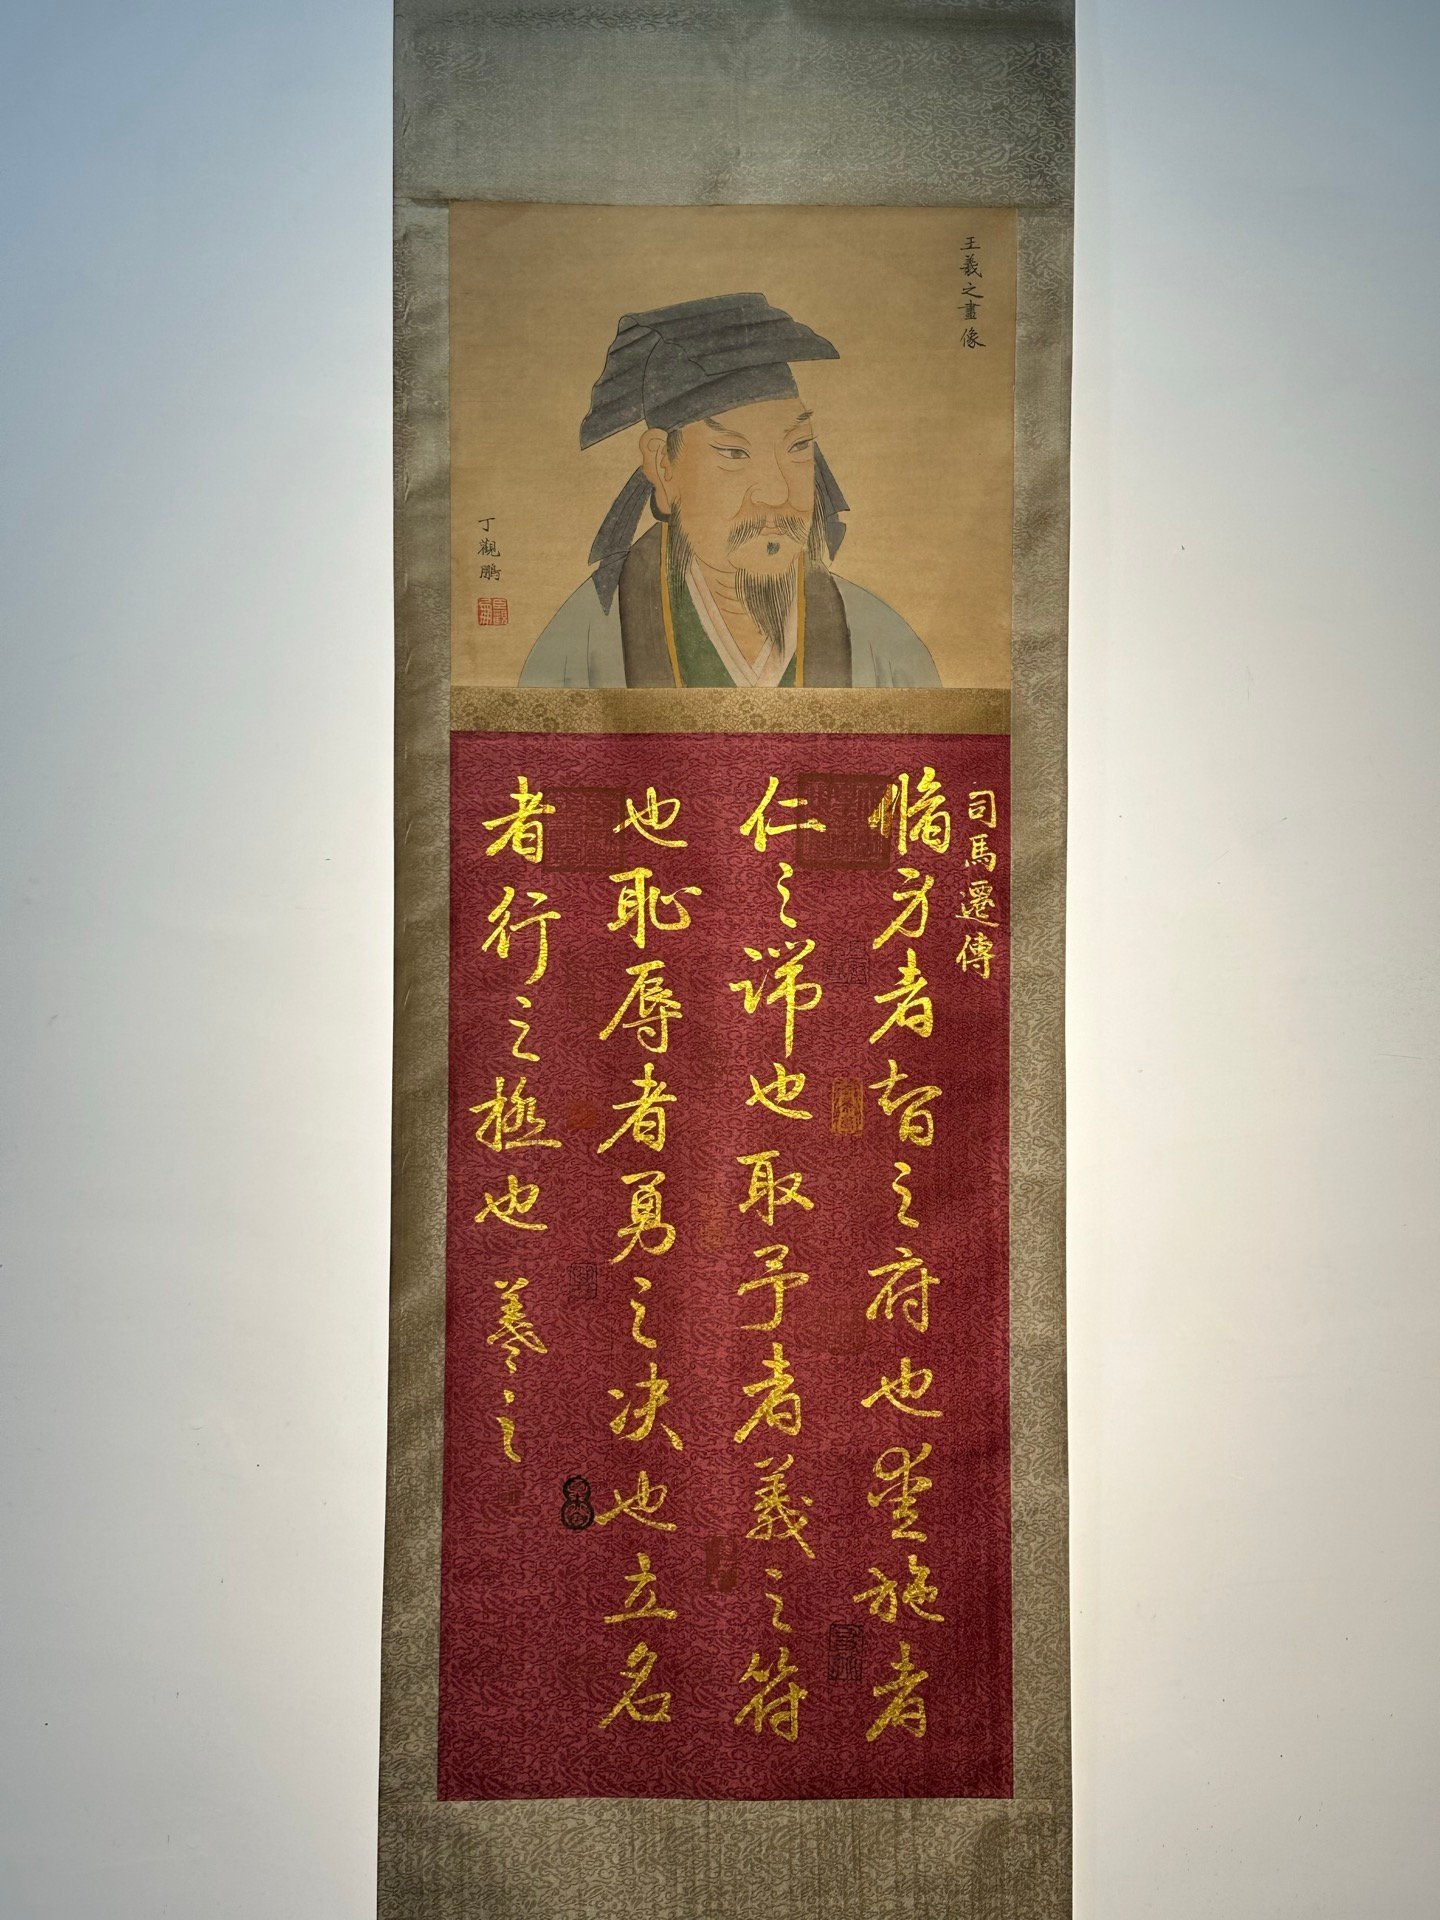 王羲之畫像
丁觀鵬
司馬遷傳
脩身者智之府也愛施者
仁之端也取予者義之符
也恥辱者勇之决也立名
者行之極也
羲之